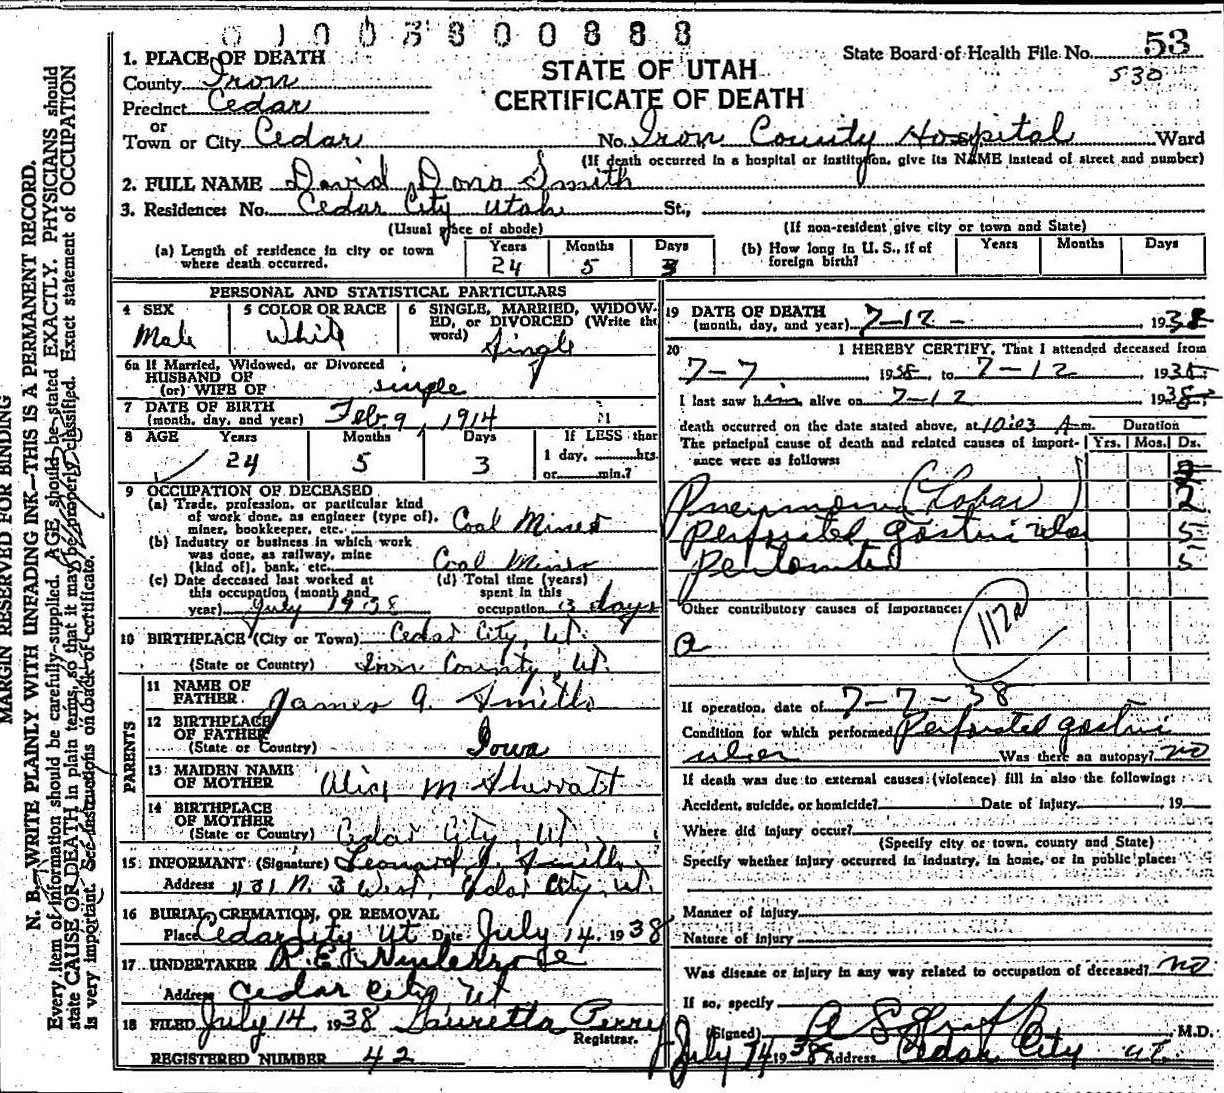 0100380088 8
State Board of Health File No. 53
530
STATE OF UTAH
CERTIFICATE OF DEATH
1. PLACE OF DEATH
County Iron
Precinct Cedar
or
Town or City Cedar No. Iron County Hospital Ward
(If death occurred in a hospital or institution, give its NAME instead of street and number)
2. FULL NAME David Dono Smith
3. Residence: No. Cedar City Utah St.,
(Usual place of abode) (If non-resident give city or town and State)
(a) Length of residence in city or town where death occurred. Years 24 Months 5 Days 3
(b) How long in U. S., if of foreign birth? Years Months Days
PERSONAL AND STATISTICAL PARTICULARS
4 SEX Male
5 COLOR OR RACE White
6 SINGLE, MARRIED, WIDOWED, or DIVORCED (Write the word) Single
6a If Married, Widowed, or Divorced
HUSBAND OF
(or) WIFE OF single
7 DATE OF BIRTH
(month, day, and year) Feb. 9, 1914
8 AGE Years 24 Months 5 Days 3 If LESS than 1 day, hrs. or min.?
9 OCCUPATION OF DECEASED
(a) Trade, profession, or particular kind
of work done, as engineer (type of),
miner, bookkeeper, etc. Coal Miner
(b) Industry or business in which work
was done, as railway, mine
(kind of), bank, etc. Coal Mines
(c) Date deceased last worked at
this occupation (month and
year) July 1938
(d) Total time (years)
spent in this
occupation 3 days
10 BIRTHPLACE (City or Town) Cedar City, Ut.
(State or Country) Iron County, Ut.
PARENTS
11 NAME OF
FATHER James G. Smith
12 BIRTHPLACE
OF FATHER
(State or Country) Iowa
13 MAIDEN NAME
OF MOTHER Alice M Sherratt
14 BIRTHPLACE
OF MOTHER
(State or Country) Cedar City, Ut.
15 INFORMANT (Signature) Leonard J. Smith
Address 431 N. 3 West, Cedar City, Ut.
16 BURIAL, CREMATION, OR REMOVAL
Place Cedar City Ut Date July 14, 1938
17 UNDERTAKER
Address Cedar City, Ut
18 FILED July 14 1938 Lauretta Perry
Registrar.
REGISTERED NUMBER 42
19 DATE OF DEATH
(month, day, and year) 7-12-, 1938
20 I HEREBY CERTIFY, That I attended deceased from
7-7, 1938, to 7-12, 1938
I last saw him alive on 7-12, 1938
death occurred on the date stated above, at 10:03 A.m. Duration
The principal cause of death and related causes of importance were as follows: Yrs. Mos. Ds.
Pneumonia (Lobar) 2
Perforated gastric ulcer 5
Peritonitis 5
Other contributory causes of importance:
112a
If operation, date of 7-7-38
Condition for which performed Perforated gastric
ulcer Was there an autopsy? no
If death was due to external causes (violence) fill in also the following:
Accident, suicide, or homicide? Date of injury 19
Where did injury occur?
(Specify city or town, county and State)
Specify whether injury occurred in industry, in home, or in public place:
Manner of Injury
Nature of injury
Was disease or injury in any way related to occupation of deceased? no
If so, specify
(Signed) M.D.
July 14 1938 Address Cedar City Ut.
MARGIN RESERVED FOR BINDING
N. B.—WRITE PLAINLY WITH UNFADING INK—THIS IS A PERMANENT RECORD.
Every item of information should be carefully supplied. AGE should be stated EXACTLY. PHYSICIANS should
state CAUSE OF DEATH in plain terms, so that it may be properly classified. Exact statement of OCCUPATION
is very important. See instructions on back of certificate.